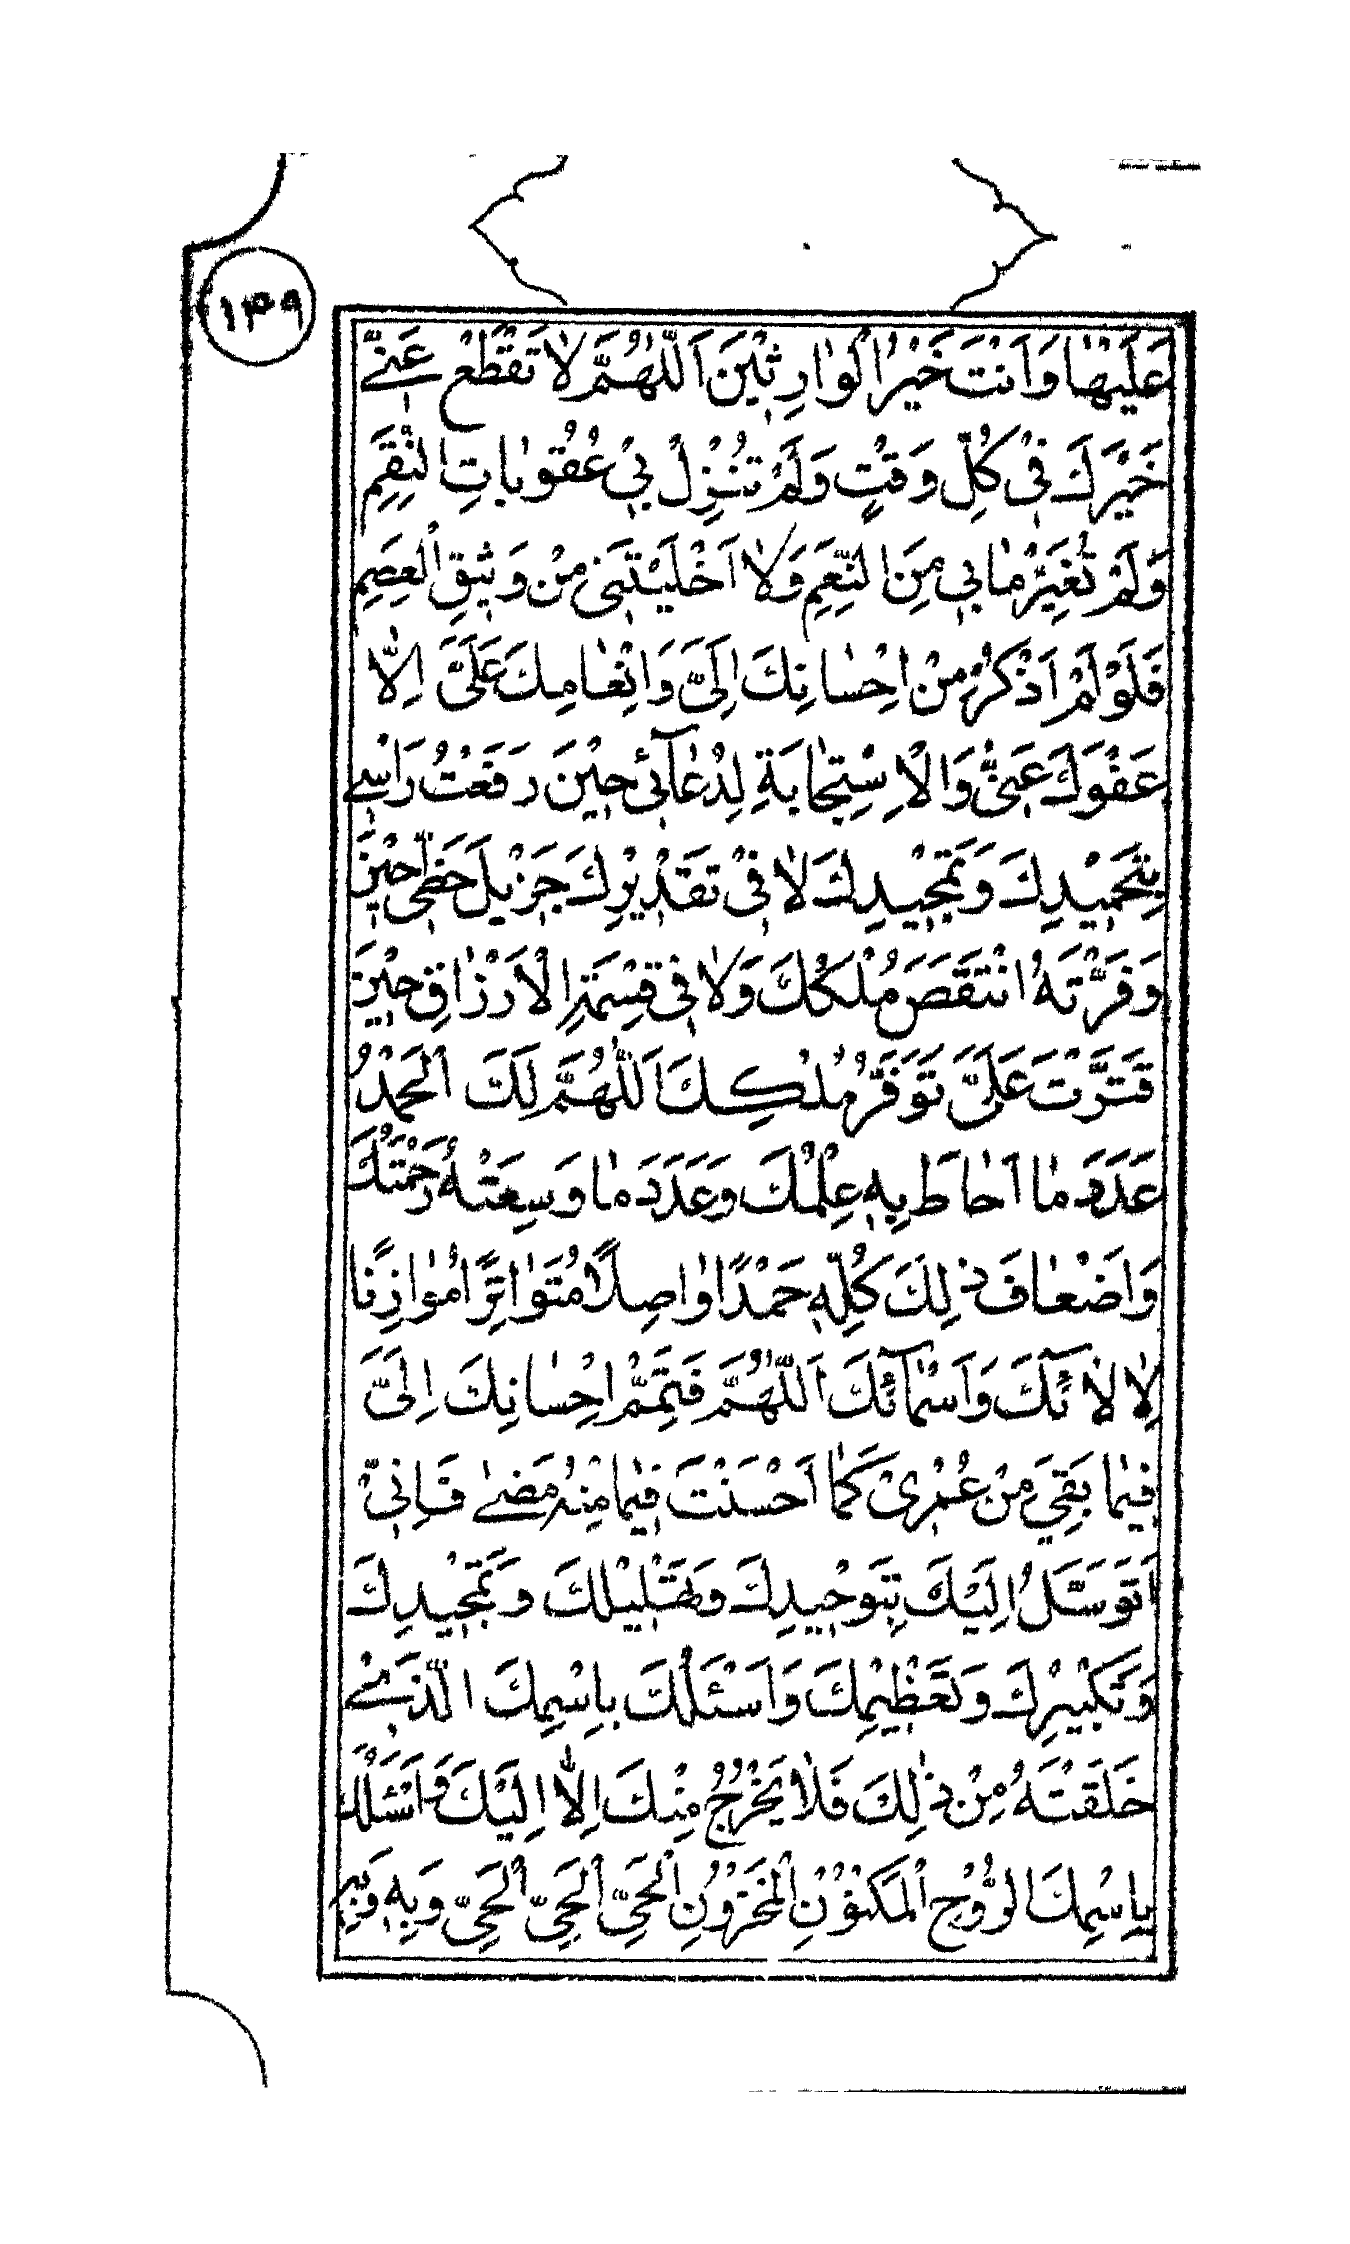 ۱۴۹
عَلَيْهَا وَاَنْتَ خَيْرُ الْوَارِثِيْنَ اَللّٰهُمَّ لَا تَقْطَعْ عَنِّيْ
خَيْرَكَ فِيْ كُلِّ وَقْتٍ وَلَمْ تُنْزِلْ بِيْ عُقُوبَاتِ النِّقَمِ
وَلَمْ تُغَيِّرْ مَا بِيْ مِنَ النِّعَمِ وَلَا اَخْلَيْتَنِيْ مِنْ وَثِيْقِ الْعِصَمِ
فَلَوْ لَمْ اَذْكُرْ مِنْ اِحْسَانِكَ اِلَيَّ وَاِنْعَامِكَ عَلَيَّ اِلَّا
عَفْوَكَ عَنِّيْ وَالْاِسْتِجَابَةِ لِدُعَآئِيْ حِيْنَ رَفَعْتُ رَاْسِيْ
بِتَحْمِيْدِكَ وَتَمْجِيْدِكَ لَا فِيْ تَقْدِيْرِكَ جَزِيْلَ حَظِّيْ حِيْنَ
وَفَّرْتَهُ انْتَقَصَ مُلْكُكَ وَلَا فِيْ قِسْمَةِ الْاَرْزَاقِ حِيْنَ
قَتَّرْتَ عَلَيَّ تَوَفَّرَ مُلْكُكَ اَللّٰهُمَّ لَكَ الْحَمْدُ
عَدَدَ مَا اَحَاطَ بِهِ عِلْمُكَ وَعَدَدَ مَا وَسِعَتْهُ رَحْمَتُكَ
وَاَضْعَافَ ذٰلِكَ كُلِّهِ حَمْدًا وَاصِلًا مُتَوَاتِرًا مُوَازِنًا
لِاٰلَائِكَ وَاَسْمَآئِكَ اَللّٰهُمَّ فَتَمِّمْ اِحْسَانِكَ اِلَيَّ
فِيْمَا بَقِيَ مِنْ عُمْرِيْ كَمَا اَحْسَنْتَ فِيْمَا مِنْهُ مَضٰى فَاِنِّيْ
اَتَوَسَّلُ اِلَيْكَ بِتَوْحِيْدِكَ وَتَهْلِيْلِكَ وَتَمْجِيْدِكَ
وَتَكْبِيْرِكَ وَتَعْظِيْمِكَ وَاَسْئَلُكَ بِاسْمِكَ الَّذِيْ
خَلَقْتَهُ مِنْ ذٰلِكَ فَلَا يَخْرُجُ مِنْكَ اِلَّا اِلَيْكَ وَاَسْئَلُكَ
بِاسْمِكَ الرُّوْحِ الْمَكْنُوْنِ الْمَخْزُوْنِ الْحَيِّ الْحَيِّ الْحَيِّ وَبِهِ وَبِهِ